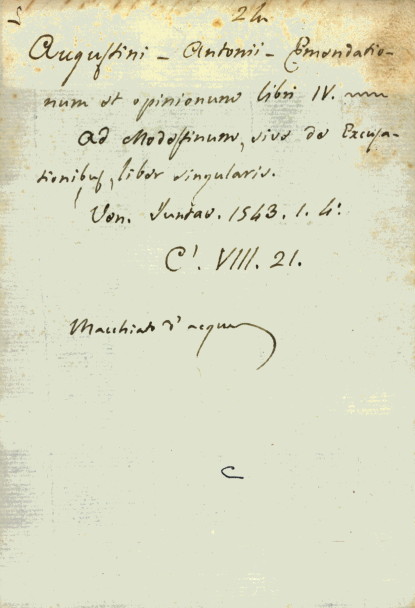 Augustini - Antonii - Emendatio-
num et opinionum libri IV.
Ad Modestinum, sive de Excusa-
tionibus, liber singularis.
Ven. Juntas. 1543. 1. 4:
C'. VIII. 21.
Macchiato d'acqua
C